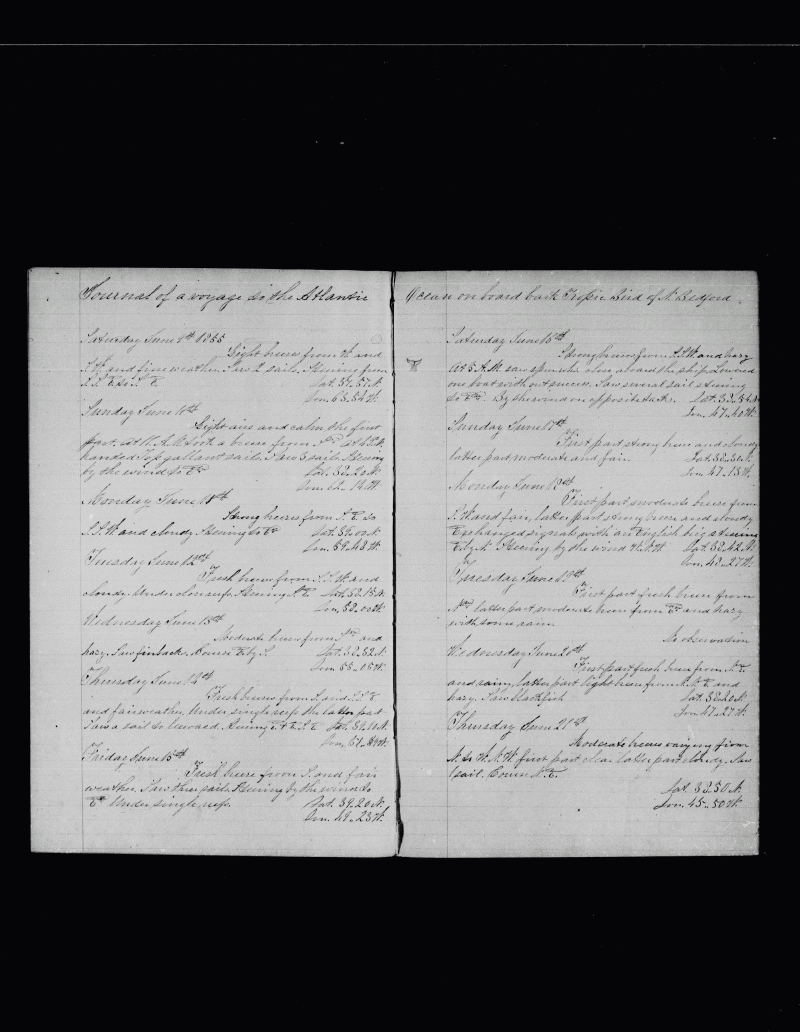 Journal of a voyage to the Atlantic
Saturday June 9th 1855
Light breeze from W and
S.W. and fine weather. Saw 2 sails. Steering from
S.E. to S.E.
Lat. 37..57 N.
Lon. 63..54 W.
Sunday June 10th
Light airs and calm the first
part. at 11 A.M. took a breeze from
handed Topgallant sails. Saw 3 sails. Steering
by the wind to E
Lat. 38..20 N.
Lon. 62..14 W.
Monday June 11th
Strong breeze from S.E. to
S.S.W. and cloudy. Steering to E
Lat. 39..00 N.
Lon. 59..48 W.
Tuesday June 12th
Fresh breeze from S.S.W. and
cloudy. Under close reefs. Steering
Lat. 38..18 N.
Lon. 58..00 W.
Wednesday June 13th
Moderate breeze from and
hazy. Saw finback. Course E by S.
Lat. 38..52 N.
Lon. 55..05 W.
Thursday June 14th
Fresh breeze from S. and S.S.E
and fair weather. Under single reefs the latter part
Saw a sail to leeward. Steering
Lon. 51.. W.
Friday June 15th
Fresh breeze from S. and fair
weather. Saw three sails. Steering by the wind to
E. Under single reefs.
Lat. 39..20 N.
Lon. 49..23 W.
Ocean on board bark Tropic Bird of N. Bedford.
Saturday June 16th
Strong breeze from S.S.W. and hazy
At 5 A.M. saw sperm whs. close aboard the ship. Lowered
one boat without success. Saw several sail steering
to E. By the wind on opposite tacks.
Lon. 47..40 W.
Sunday June 17th
First part strong breeze and cloudy
latter part moderate and fair.
Lat. 38..30 N.
Lon. 47..13 W.
Monday June 18th
First part moderate breeze from
S.W. and fair, latter part strong breeze and cloudy
Exchanged signals with an English brig steering
E by N. Steering by the wind W.N.W.
Lat. 38..42 N.
Lon. 48..27 W.
Tuesday June 19th
First part fresh breeze from
latter part moderate breeze from E and hazy
with some rain.
No observation
Wednesday June 20th
First part fresh breeze from N.E.
and rainy, latter part light breeze from N.N.E. and
hazy. Saw blackfish.
Lat. 38..20 N.
Lon. 47..27 W.
Thursday June 21st
Moderate breeze varying from
N. to W.N.W. first part clear latter part cloudy. Saw
1 sail. Course S.E.
Lat. 38..50 N.
Lon. 45..50 W.